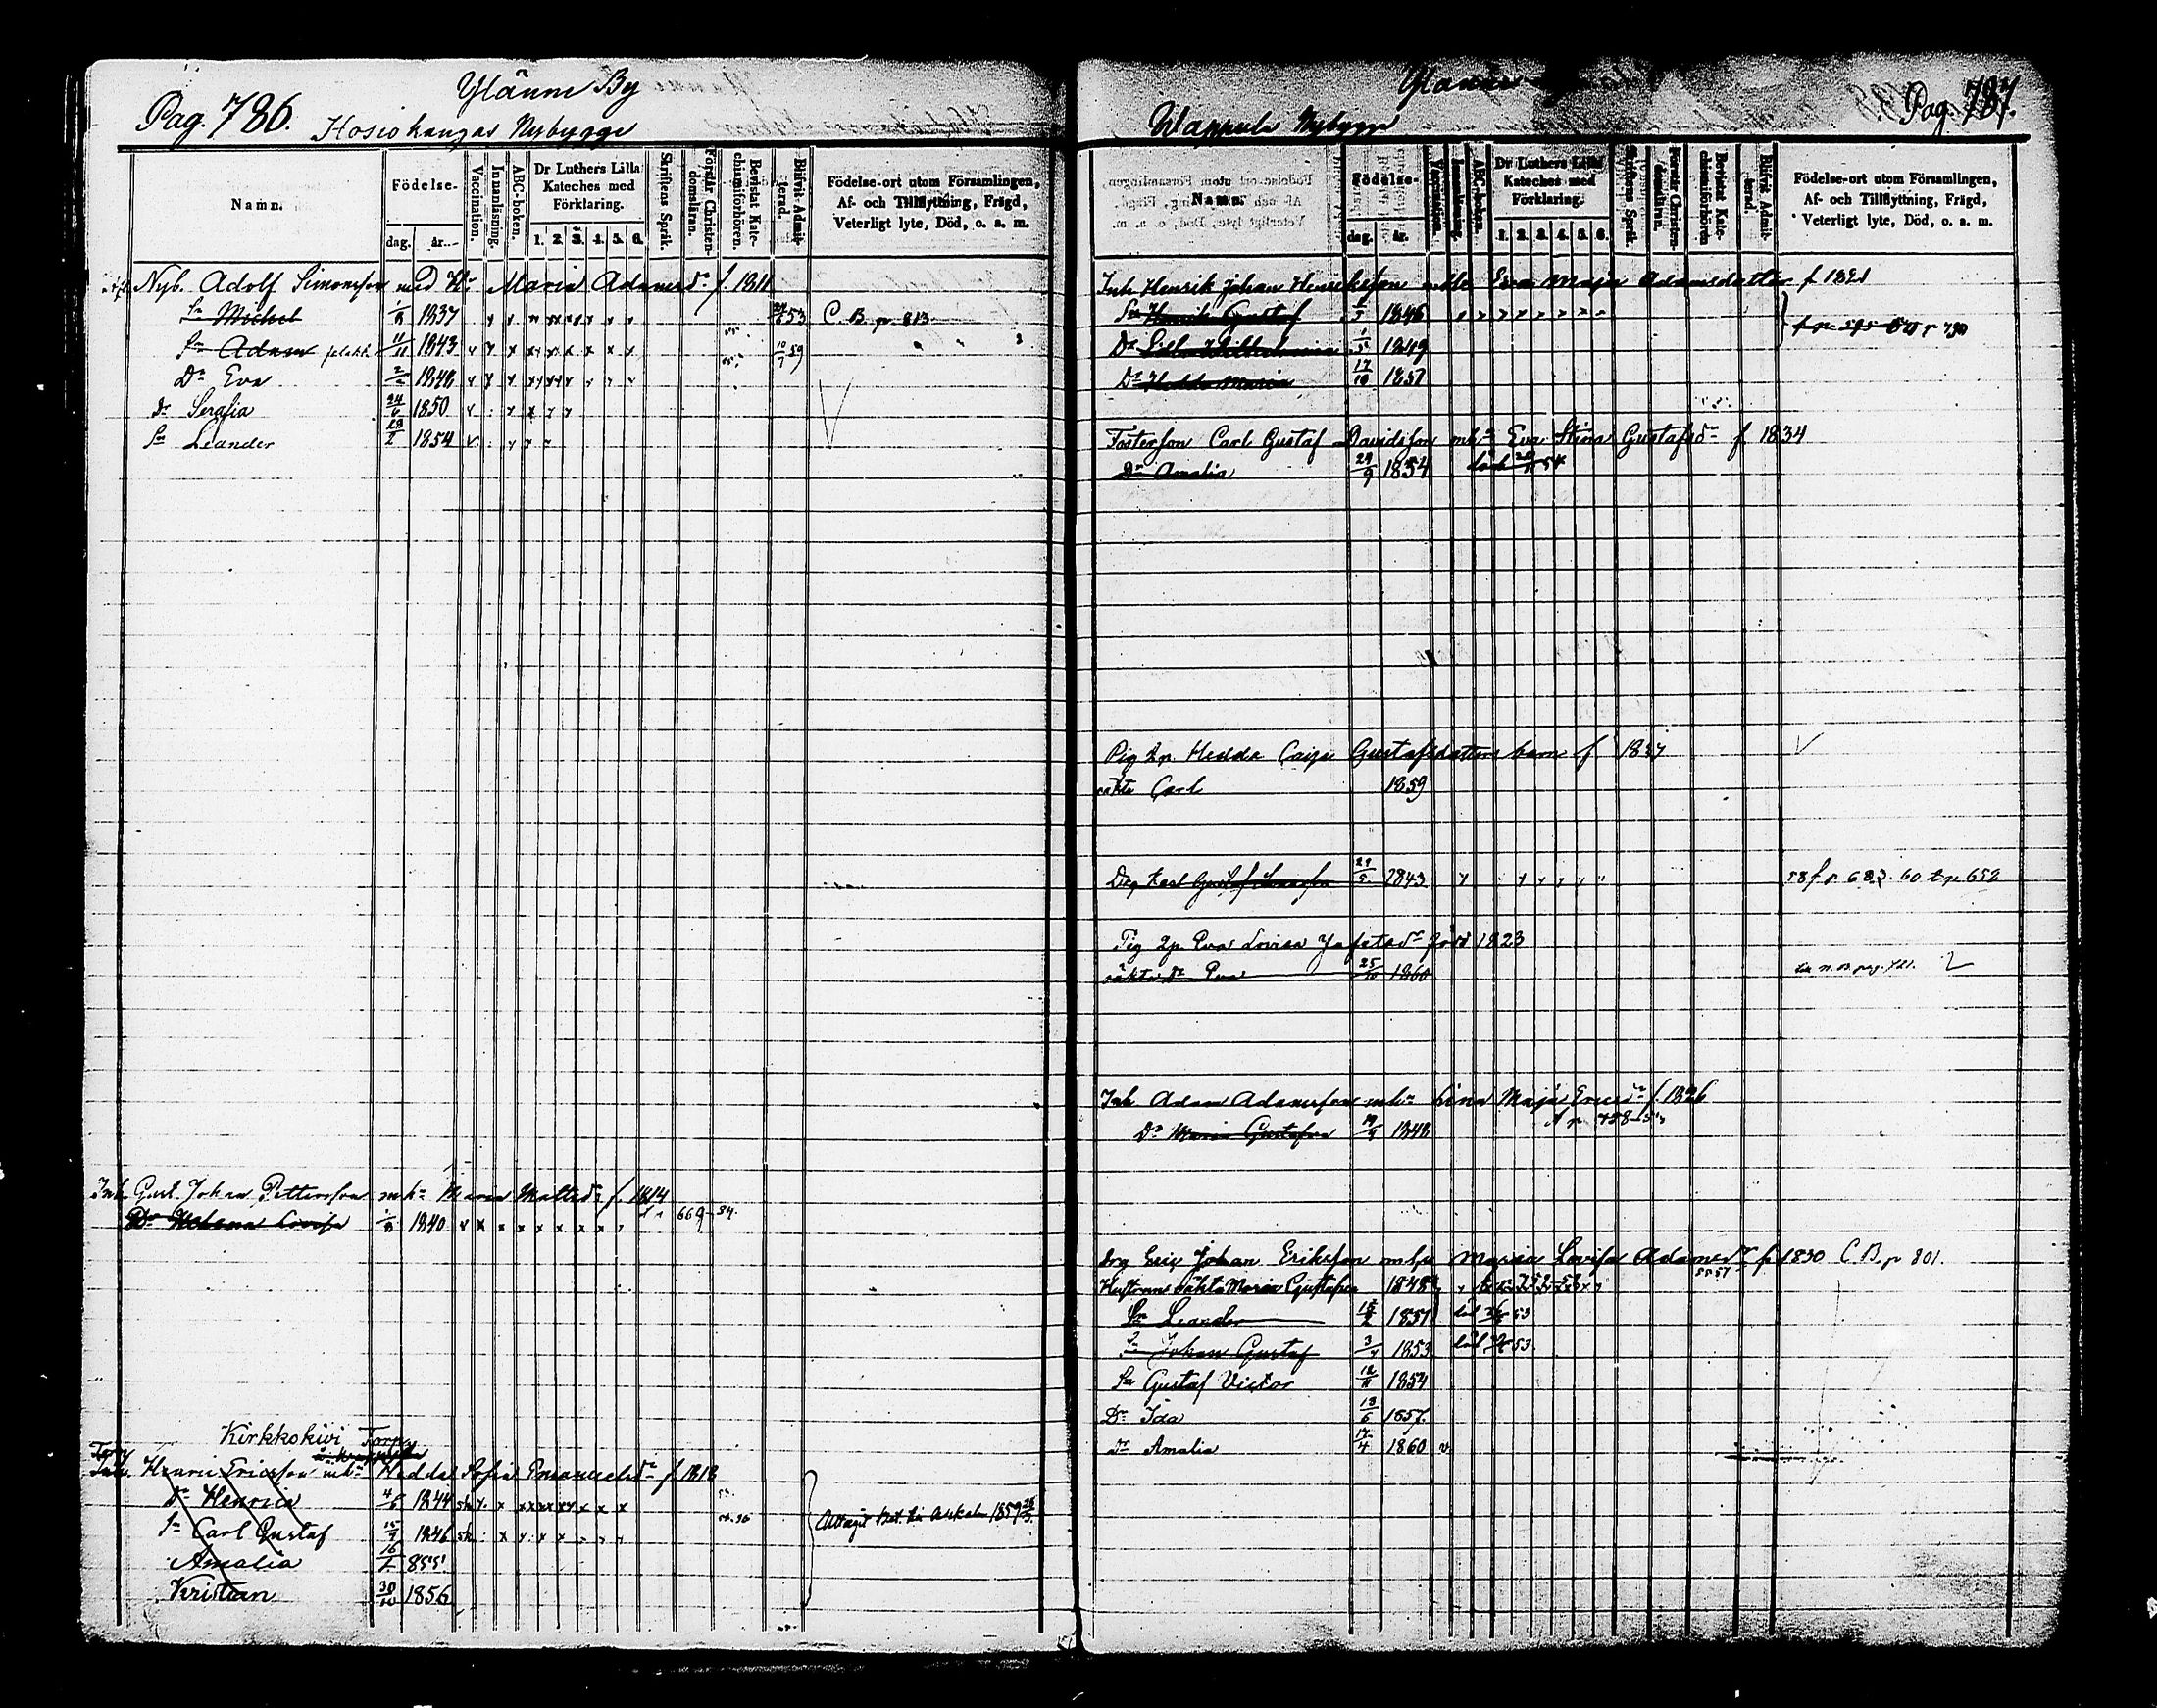 Pag. 786.
Yläune By
Hosiokangas Nybygge
Namn.
Födelse-
dag. år.
Vaccination.
Innanläsning.
ABC-boken.
Dr Luthers Lilla Kateches med Förklaring.
1. 2. 3. 4. 5. 6.
Skriftens Språk.
Förstår Christendomsläran.
Bevistat Katechismiförhören.
Blifvit Admitterad.
Födelse-ort utom Församlingen,
Af- och Tillflyttning, Frägd,
Veterligt lyte, Död, o. a. m.
Nyb. Adolf Simonsson med Hu Maria Adamsdr f. 1811
Sn Michel 1837 53 C. B. p. 813
Sn Adam 11/11 1843 10/7 59
Dr Eva 2/2 1848
Dr Serafia 24/6 1850
Sn Leander 1854
Inh. Gust. Johan Pettersson mhu Maria Mattsdr f. 1814
Dr Helena Lovisa 1840 669-54.
Kirkkokivi Torp
Torp
Inh. Henric Ericsson mhu Hedda Sofia Emanuelsdr f 1818
Dr Henrica 4/6 1844
Sn Carl Gustaf 15/7 1846
Amalia 16/2 855
Kristian 30/10 1856
Uttagit Bet. till Askola 1859
Pag. 787.
Yläune
Wappula Nybygge
Namn.
Födelse-
dag. år.
Vaccination.
Innanläsning.
ABC-boken.
Dr Luthers Lilla Kateches med Förklaring.
1. 2. 3. 4. 5. 6.
Skriftens Språk.
Förstår Christendomsläran.
Bevistat Katechismiförhören.
Blifvit Admitterad.
Födelse-ort utom Församlingen,
Af- och Tillflyttning, Frägd,
Veterligt lyte, Död, o. a. m.
Inh Henrik Johan Henriksson mhu Eva Maja Adamsdotter f 1821
Sn Henrik Gustaf 1846
Dr Wilhelmina 1849
Dr Hedda Maria 17/10 1857
Fosterson Carl Gustaf Davidsson mhu Eva Stina Gustafsdr f 1834
Dr Amalia 29/9 1854 död 54
Pig Hedda Cajsa Gustafsdotters barn f 1837
oäkta Carl 1859
Drg Karl Gustaf 1843 58 f p 683. 60 t p 652
Pig Eva Lovisa född 1823
oäkta dr Eva 25/10 1860
Inh Adam Adamsson mhu Lena Maja Ericsdr f. 1826
Dr Maria Gustafva 1848
Drg Eric Johan Eriksson mhu Maria Lovisa Adamsdr f 1830 C.B. p 801.
Hustruns oäkta Maria Gustafva 1848
Sn Leander 1851 död 53
Sn Johan Gustaf 3/4 1853 död 53
Sn Gustaf Victor 12/11 1854
Dr Ida 13/6 1857.
Dr Amalia 17/4 1860